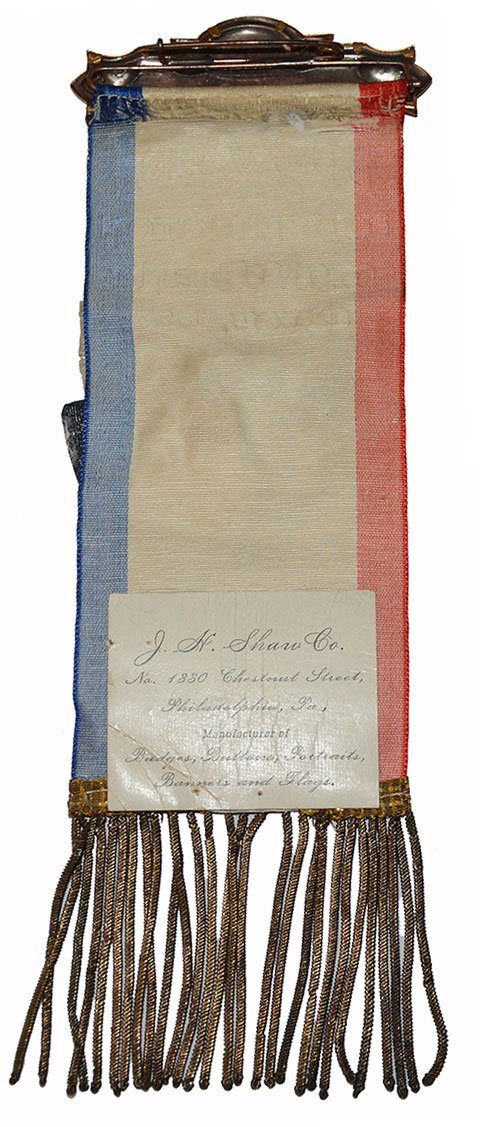 J. N. Shaw Co.
No. 1330 Chestnut Street,
Philadelphia, Pa.,
Manufacturer of
Badges, Buttons, Portraits,
Banners and Flags.